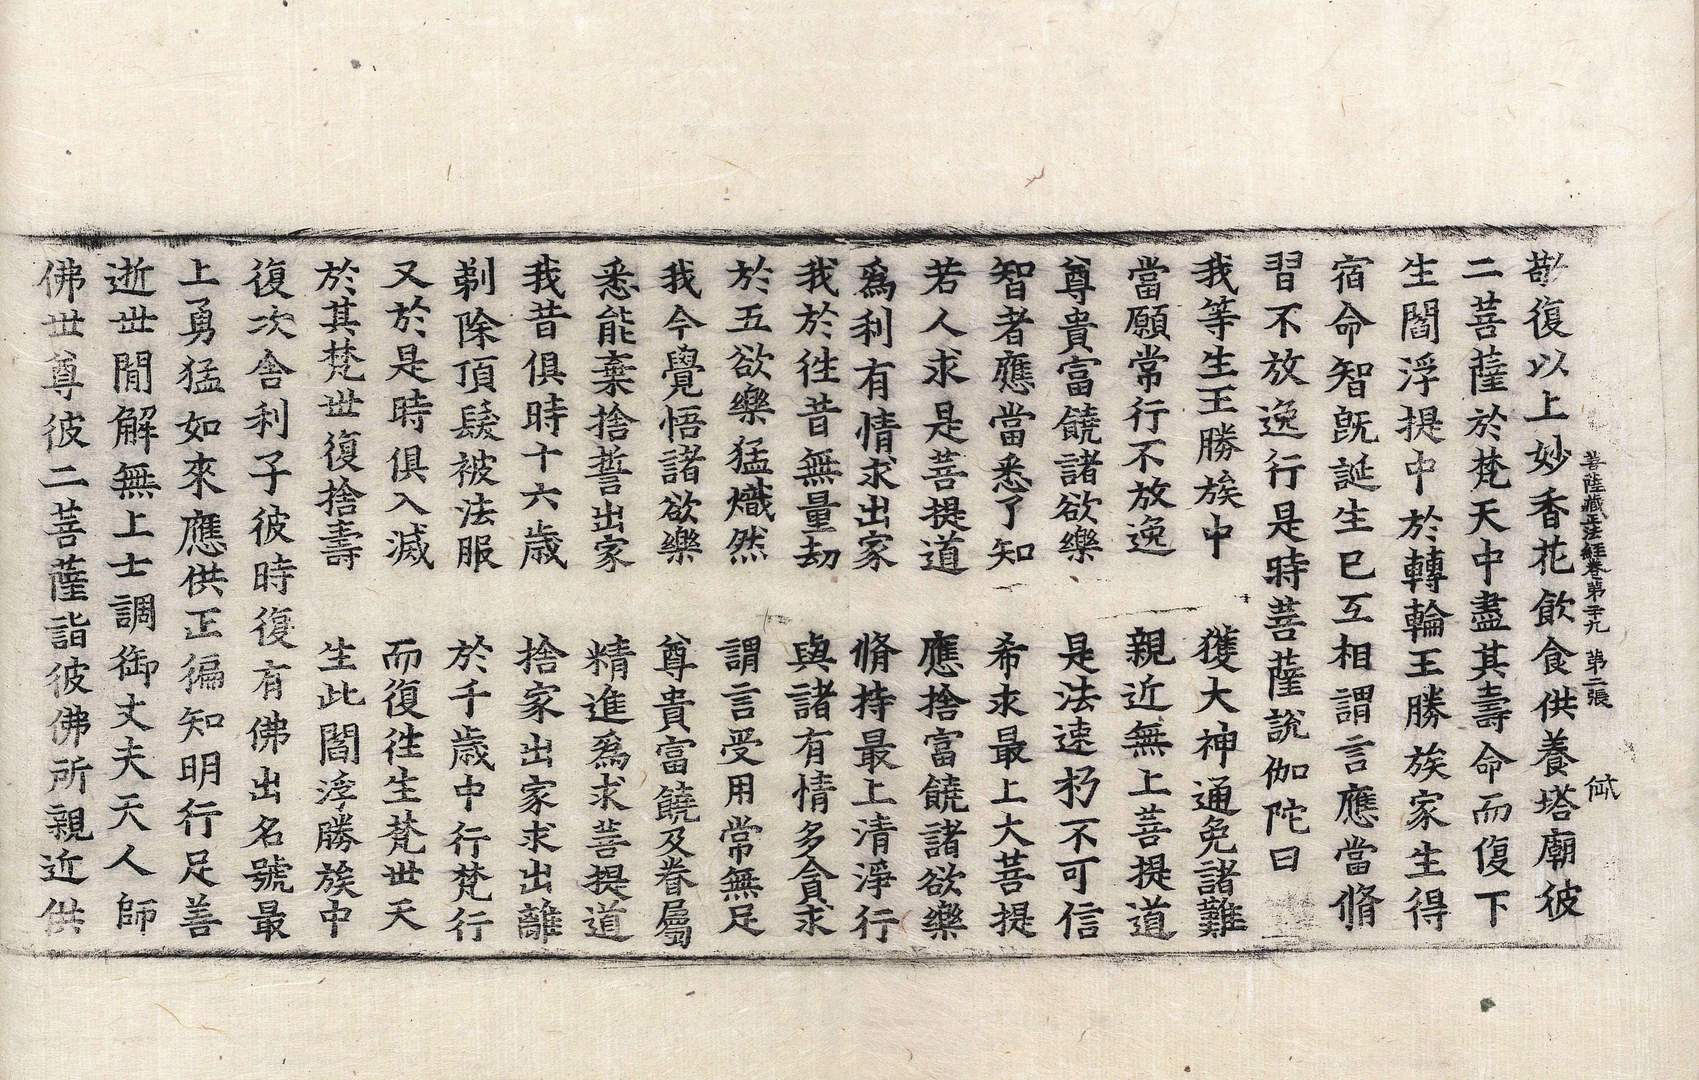 菩薩藏正法經卷第三十九 第二張
敬復以上妙香花飲食供養塔廟彼
二菩薩於梵天中盡其壽命而復下
生閻浮提中於轉輪王勝族家生得
宿命智旣誕生已互相謂言應當脩
習不放逸行是時菩薩說伽陀曰
我等生王勝族中 獲大神通免諸難
當願常行不放逸 親近無上菩提道
尊貴富饒諸欲樂 是法速朽不可信
智者應當悉了知 希求最上大菩提
若人求是菩提道 應捨富饒諸欲樂
爲利有情求出家 脩持最上清淨行
我於往昔無量劫 與諸有情多貪求
於五欲樂猛熾然 謂言受用常無足
我今覺悟諸欲樂 尊貴富饒及眷屬
悉能棄捨誓出家 精進爲求菩提道
我昔俱時十六歲 捨家出家求出離
剃除頂髮被法服 於千歲中行梵行
又於是時俱入滅 而復往生梵世天
於其梵世復捨壽 生此閻浮勝族中
復次舍利子彼時復有佛出名號最
上勇猛如來應供正徧知明行足善
逝世閒解無上士調御丈夫天人師
佛世尊彼二菩薩詣彼佛所親近供